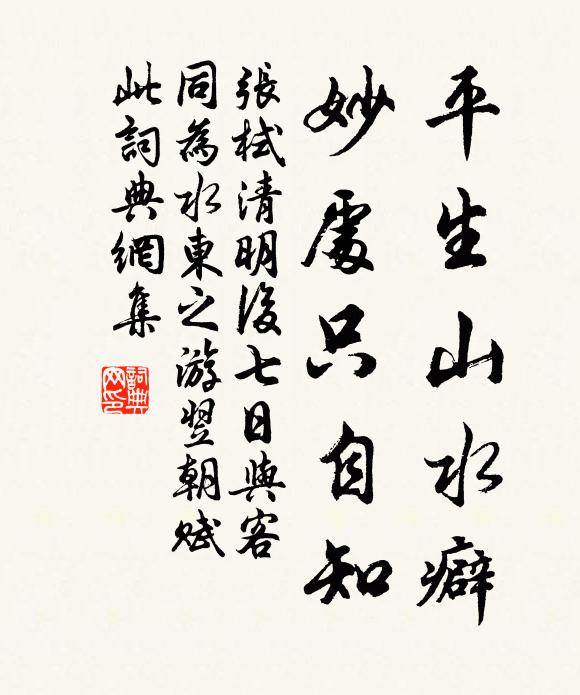 平生山水癖
妙處只自知
張栻清明後七日與客
同為水東之游翌朝賦
此詞典網集
詞典
网印